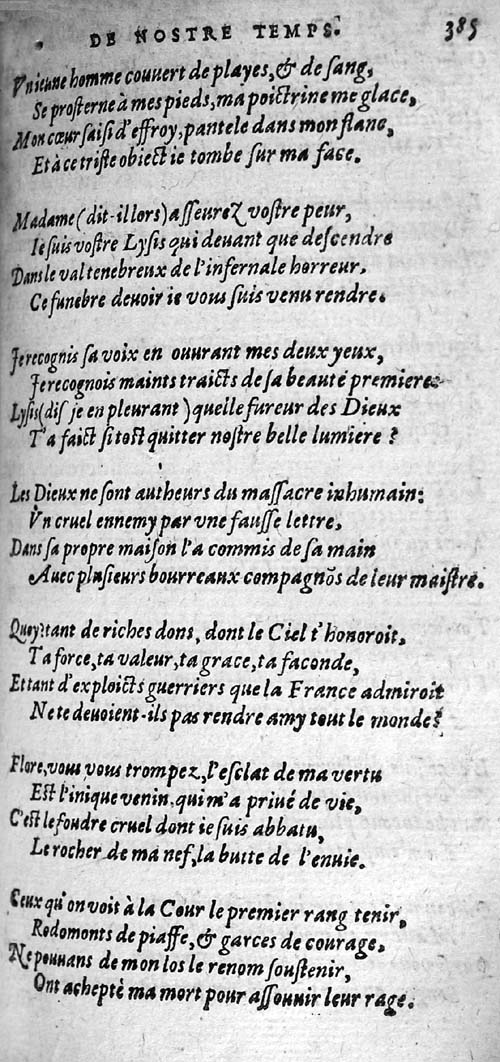 DE NOSTRE TEMPS. 385
Vn ieune homme couuert de playes, & de sang,
Se prosterne à mes pieds, ma poictrine me glace,
Mon cœur saisi d'effroy, pantele dans mon flanc,
Et à ce triste obiect ie tombe sur ma face.
Madame (dit-il lors) asseurez vostre peur,
Ie suis vostre Lysis qui deuant que descendre
Dans le val tenebreux de l'infernale horreur,
Ce funebre deuoir ie vous suis venu rendre.
Ie recognis sa voix en ouurant mes deux yeux,
Ie recognois maints traicts de sa beauté premiere:
Lysis (dis je en pleurant) quelle fureur des Dieux
T'a faict si tost quitter nostre belle lumiere?
Les Dieux ne sont autheurs du massacre inhumain:
Vn cruel ennemy par vne fausse lettre,
Dans sa propre maison l'a commis de sa main
Auec plusieurs bourreaux compagnõs de leur maistre.
Quoy? tant de riches dons, dont le Ciel t'honoroit,
Ta force, ta valeur, ta grace, ta faconde,
Et tant d'exploicts guerriers que la France admiroit
Ne te deuoient-ils pas rendre amy tout le monde?
Flore, vous vous trompez, l'esclat de ma vertu
Est l'inique venin, qui m'a priué de vie,
C'est le foudre cruel dont ie suis abbatu,
Le rocher de ma nef, la butte de l'enuie.
Ceux qu'on voit à la Cour le premier rang tenir,
Rodomonts de piaffe, & garces de courage,
Ne pouuans de mon los le renom soustenir,
Ont achepté ma mort pour assouuir leur rage.